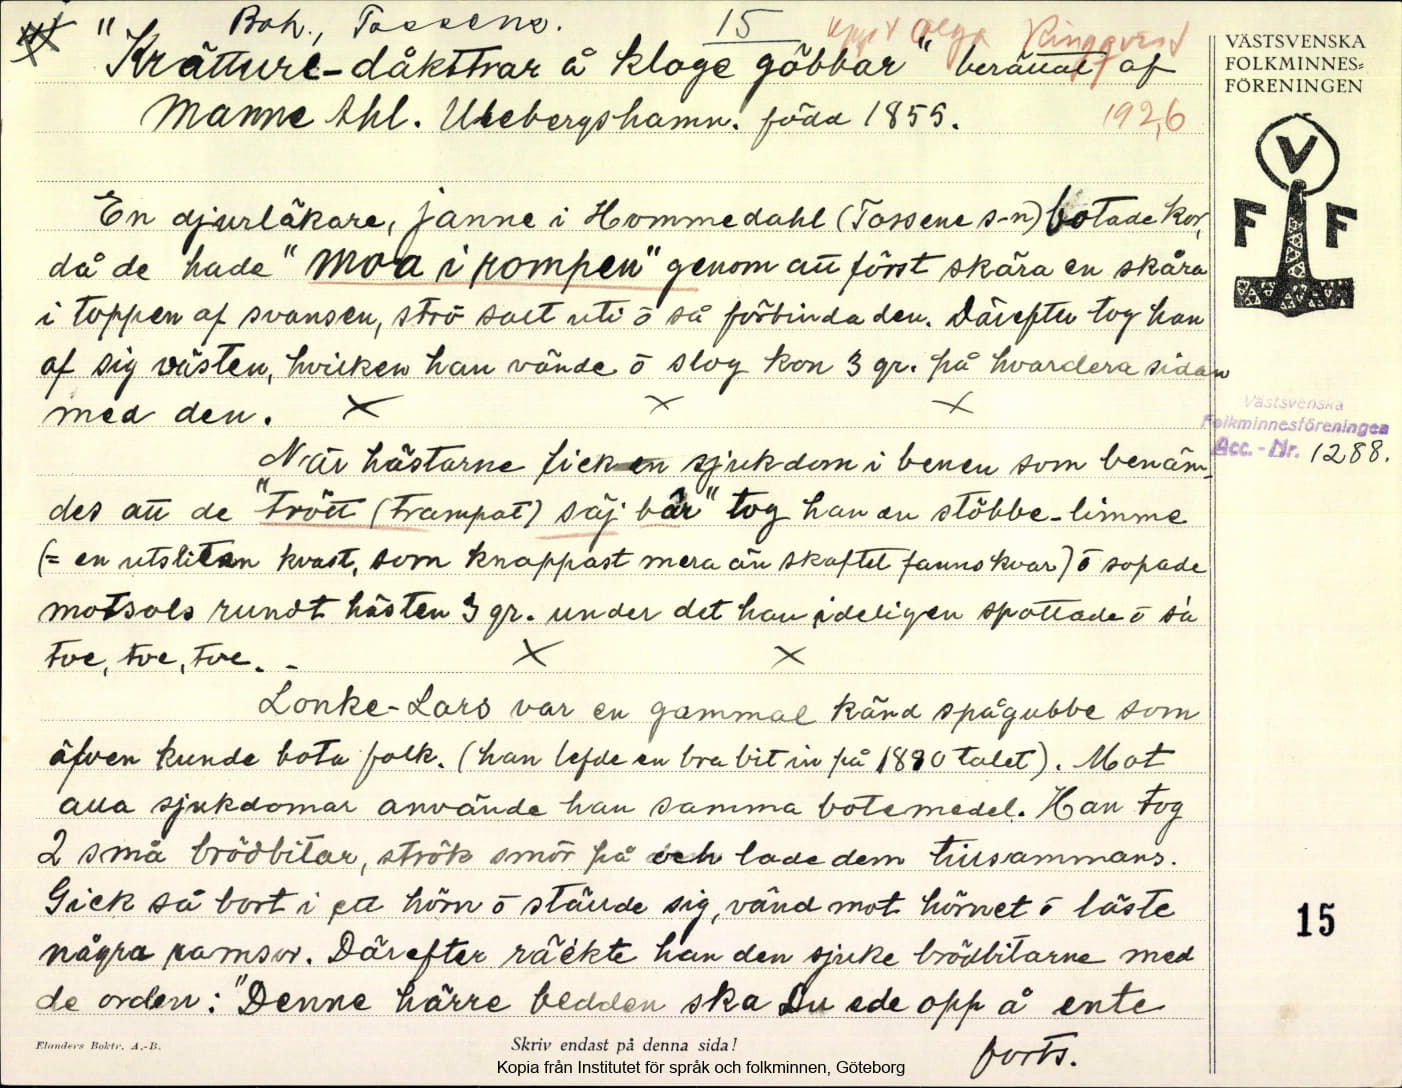 Boh., Tossene.
15
Uppt Olga Ringqvist
1926
"Krätture-dåkttrar å kloge göbbar" berättat af
Manne Ahl. Ulebergshamn. född 1855.
En djurläkare, Janne i Hommedahl (Tossene s-n) botade kor,
då de hade "moa i rompen" genom att först skära en skåra
i toppen af svansen, strö salt uti ō så förbinda den. Därefter tog han
af sig västen, hvilken han vände ō slog kon 3 gr. på hvardera sidan
med den.
När hästarne fick en sjukdom i benen som benäm-
des att de "trött (trampat) säj bår" tog han en stöbbe-limme
(= en utsliten kvast, som knappast mera än skaftet fanns kvar) ō sopade
motsols rundt hästen 3 gr. under det han ideligen spottade ō sa'
tve, tve, tve. -
Lonke-Lars var en gammal känd spågubbe som
äfven kunde bota folk. (han lefde en bra bit in på 1890 talet). Mot
alla sjukdomar använde han samma botemedel. Han tog
2 små brödbitar, strök smör på och lade dem tillsammans.
Gick så bort i ett hörn ō stände sig, vänd mot hörnet ō läste
några ramsor. Därefter räckte han den sjuke brödbitarne med
de orden: "Denne härre bedden ska Du ede opp å ente
forts.
VÄSTSVENSKA
FOLKMINNES=
FÖRENINGEN
V
F F
Västsvenska
Folkminnesföreningen
Acc. - Nr. 1288.
15
Elanders Boktr. A.-B.
Skriv endast på denna sida!
Kopia från Institutet för språk och folkminnen, Göteborg